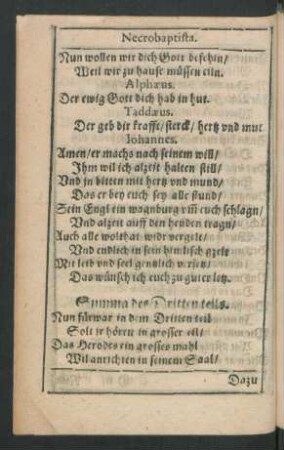 Necrobaptista.
Nun wollen wir dich Gott befehln/
Weil wir zu hause müssen eiln.
Alphæus.
Der ewig Gott dich hab in hut.
Taddæus.
Der geb dir krafft/ sterck/ hertz vnd mut
Iohannes.
Amen/ er machs nach seinem will/
Ihm wil ich alzeit halten still/
Vnd jn bitten mit hertz vnd mund/
Das er bey euch sey alle stund/
Sein Engl ein wagnburg vm̃ euch schlagn/
Vnd alzeit auff den henden tragn/
Auch alle wolthat widr vergelt/
Vnd endlich in sein himlisch gzelt
Mit leib vnd seel
Das wünsch ich euch zu guter letz.
Summa des Dritten teils.
Nun fürwar in dem Dritten teil
Solt jr hören in grosser eil/
Das Herodes ein grosses mahl
Wil anrichten in seinem Saal/
Dazu